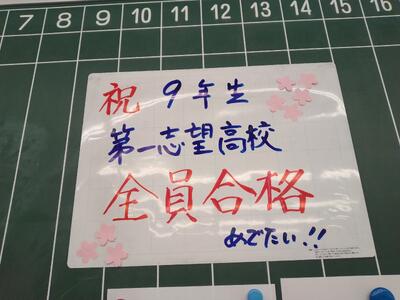 7 8 9 10 11 12 13 14 15 16
祝 9年生
第一志望高校
全員合格
めでたい!!